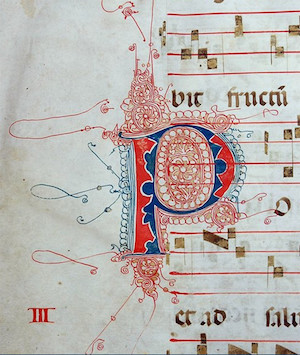 vit fructū
P o
III
et ad salu